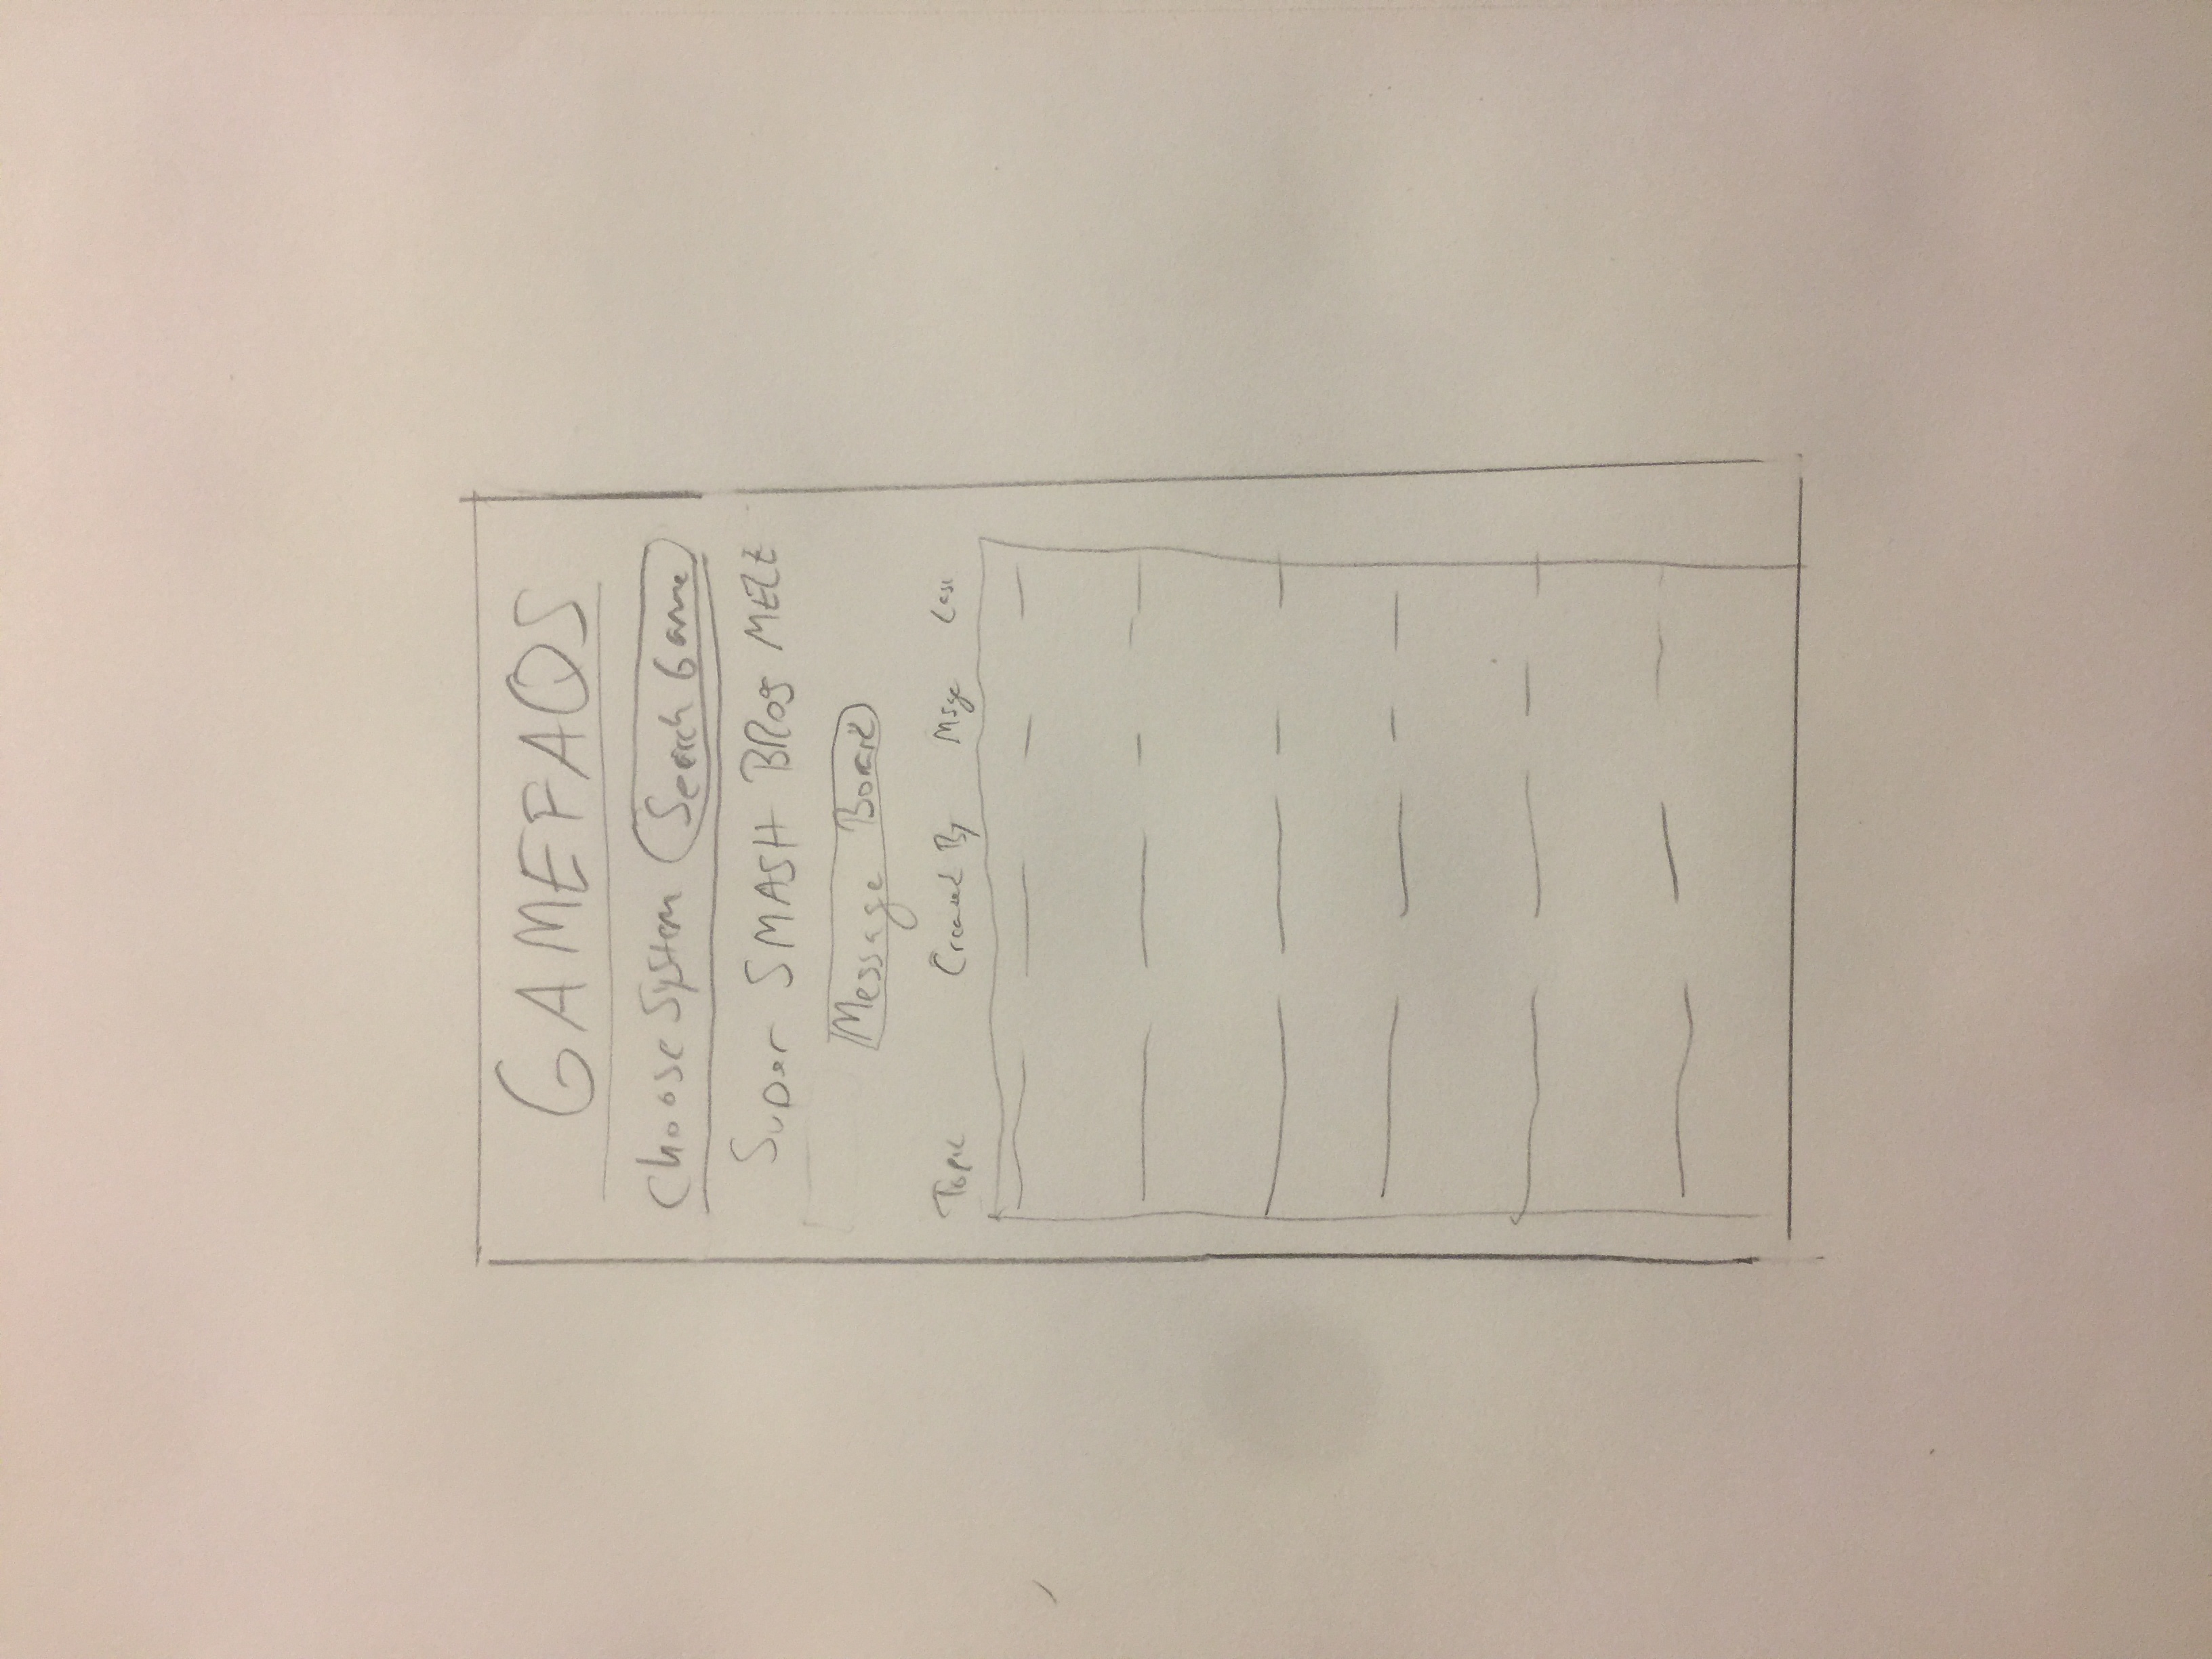 GAMEFAQS
Choose System Search Game
Super SMASH BROS MELE
Message Board
Topic Created By Msge Last